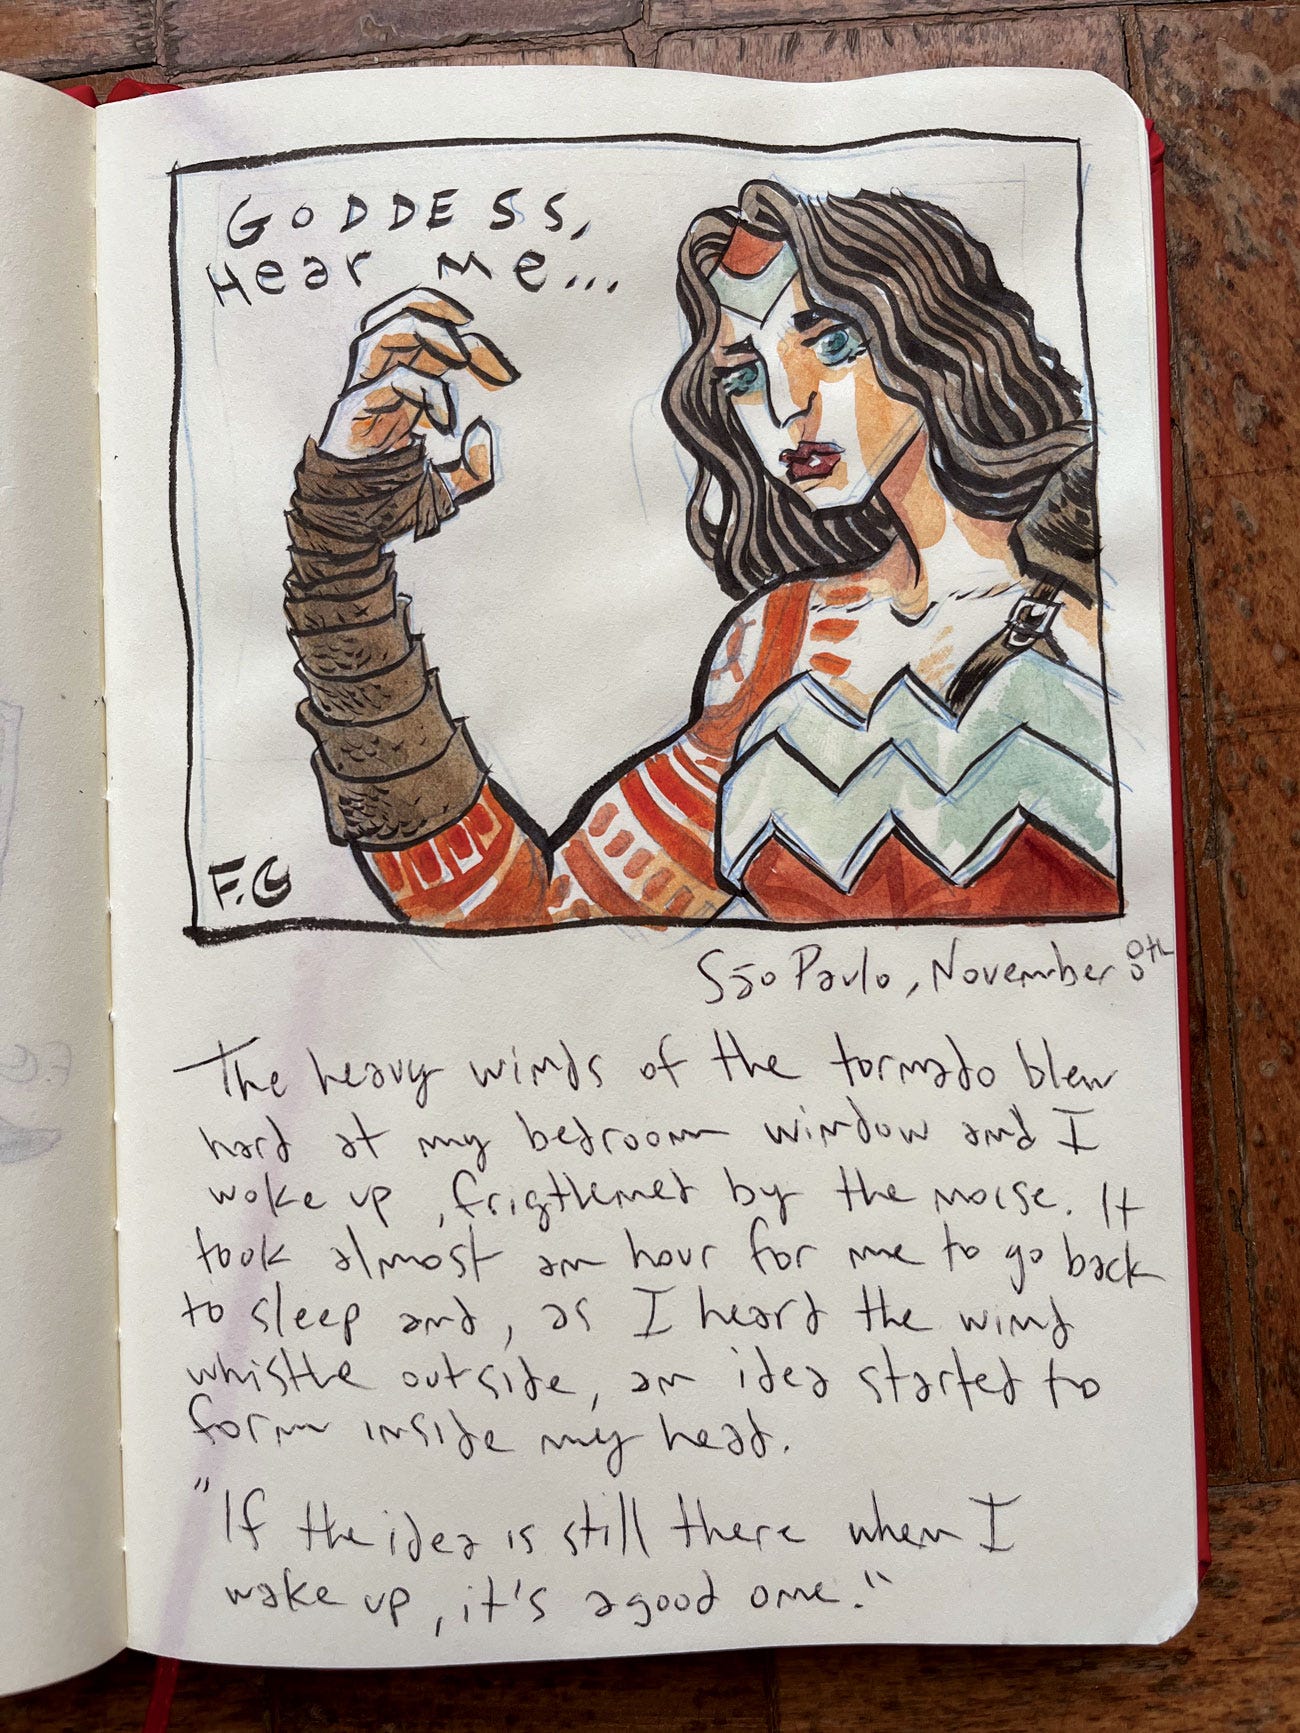 GODDESS,
Hear me...
F.G
São Paulo, November 8th
The heavy winds of the tornado blew
hard at my bedroom window and I
woke up, frigthened by the noise. It
took almost an hour for me to go back
to sleep and, as I heard the wind
whistle outside, an idea started to
form inside my head.
"If the idea is still there when I
wake up, it's a good one."